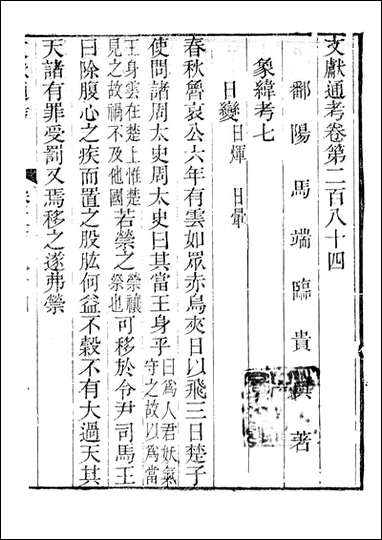 文獻通考卷第二百八十四
鄱陽馬端臨貴與著
象緯考七
日變日煇 日暈
春秋魯哀公六年有雲如眾赤鳥夾日以飛三日楚子
使問諸周太史周太史曰其當王身乎日爲人君妖氣守之故以爲當
王身雲在楚上惟楚見之故禍不及他國若禜之禜禳祭也可移於令尹司馬王
曰除腹心之疾而置之股肱何益不穀不有大過天其
夭諸有罪受罰又焉移之遂弗禜